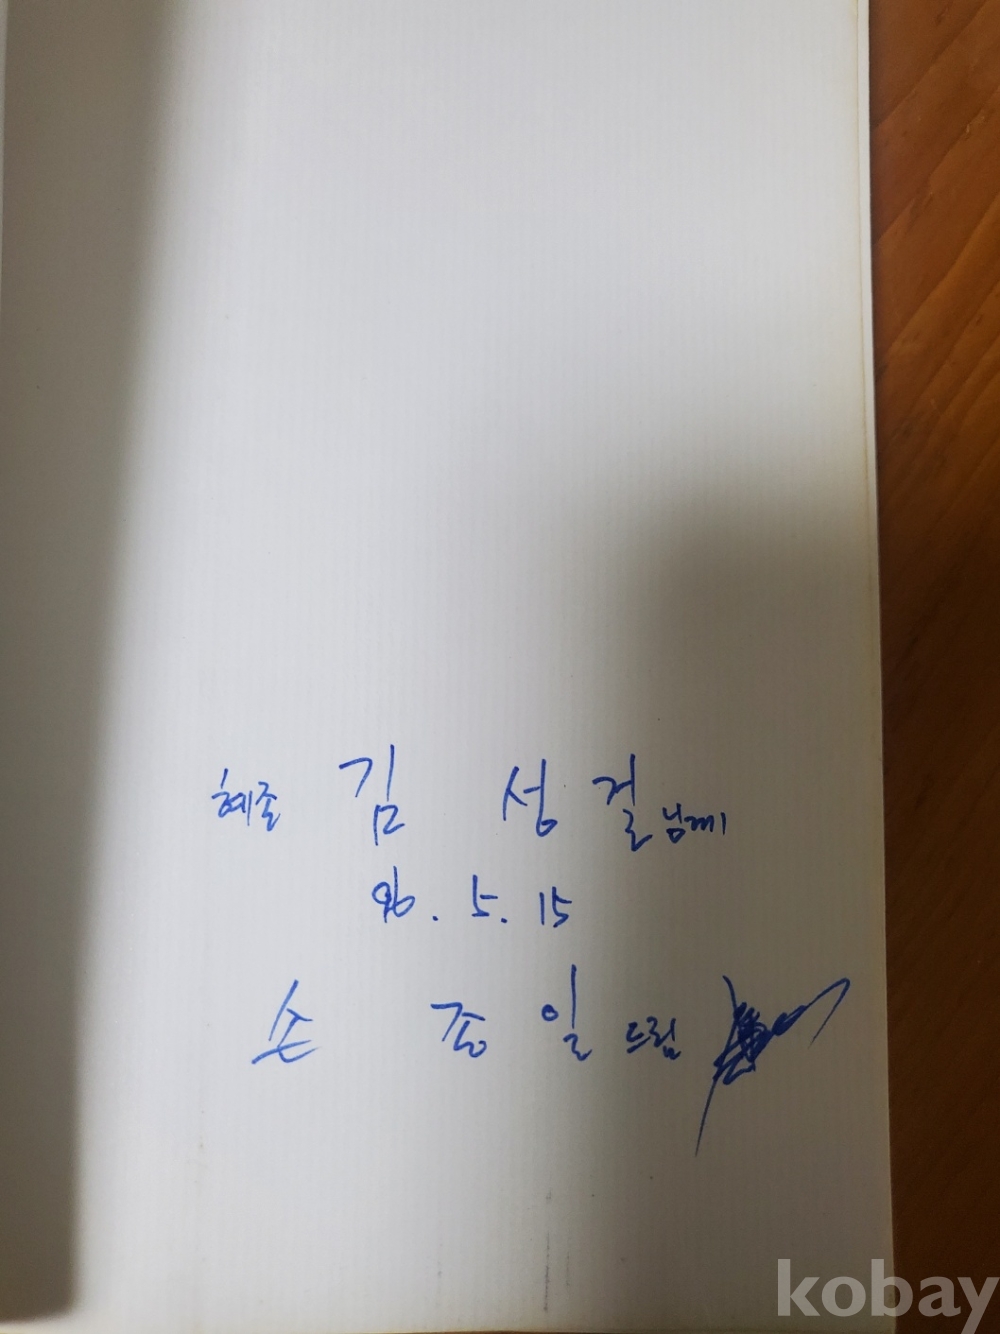 혜존 김 성 걸 님께
96. 5. 15
손 종 일 드림
kobay